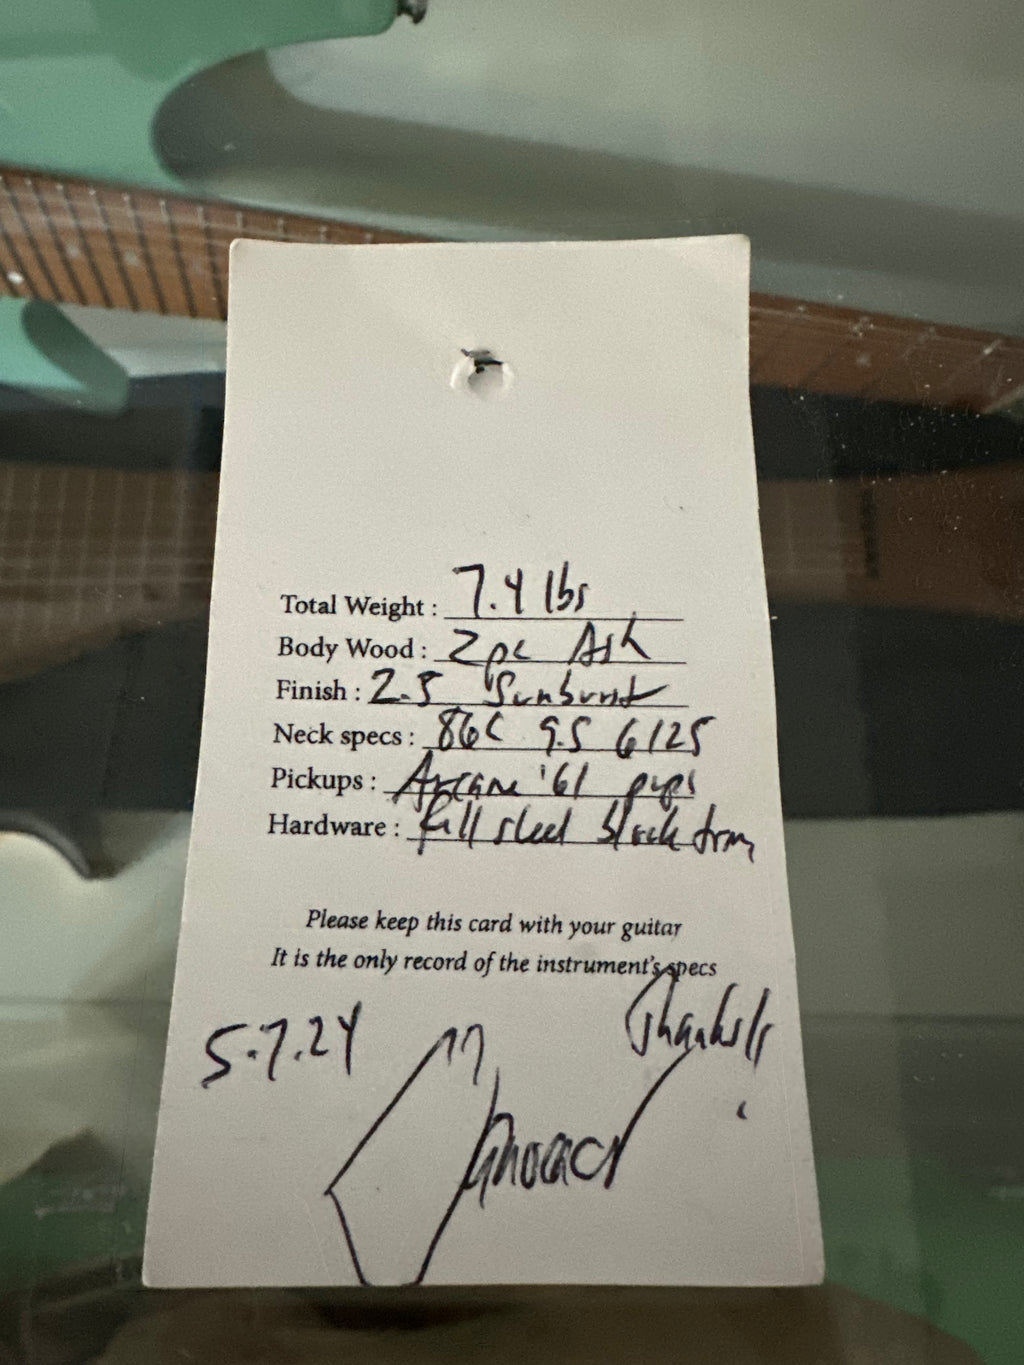 Total Weight : 7.4 lbs
Body Wood : 2pc Ash
Finish : 2.5 Sunburst
Neck specs : 86C 9.5 6125
Pickups : Arcane '61 pups
Hardware : full steel block trem
Please keep this card with your guitar
It is the only record of the instrument's specs
Thanks!!
5.7.24